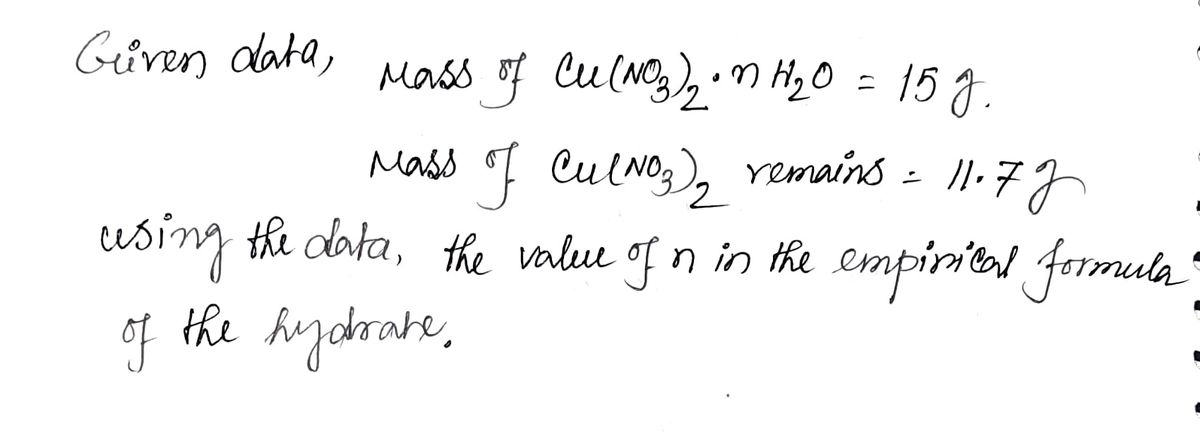 Given data, Mass of Cu(NO₃)₂·n H₂O = 15 g.
Mass of Cu(NO₃)₂ remains = 11.7 g
using the data, the value of n in the empirical formula
of the hydrate.